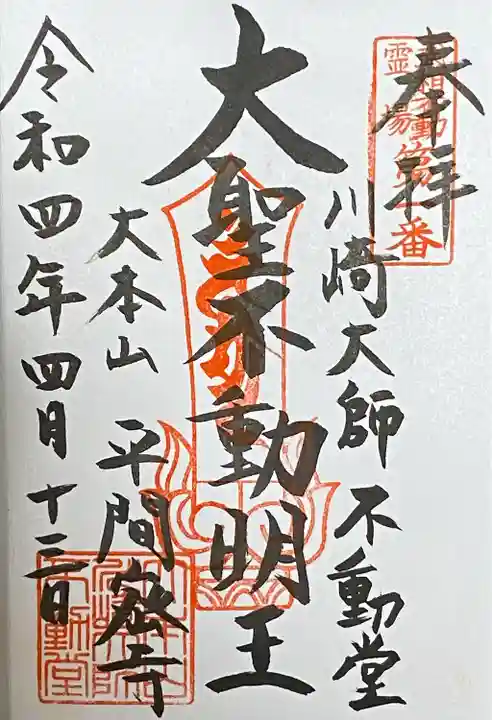 奉拝
武相不動
霊場
第一番
川崎大師 不動堂
大聖不動明王
大本山 平間密寺
令和四年四月十三日
不動堂